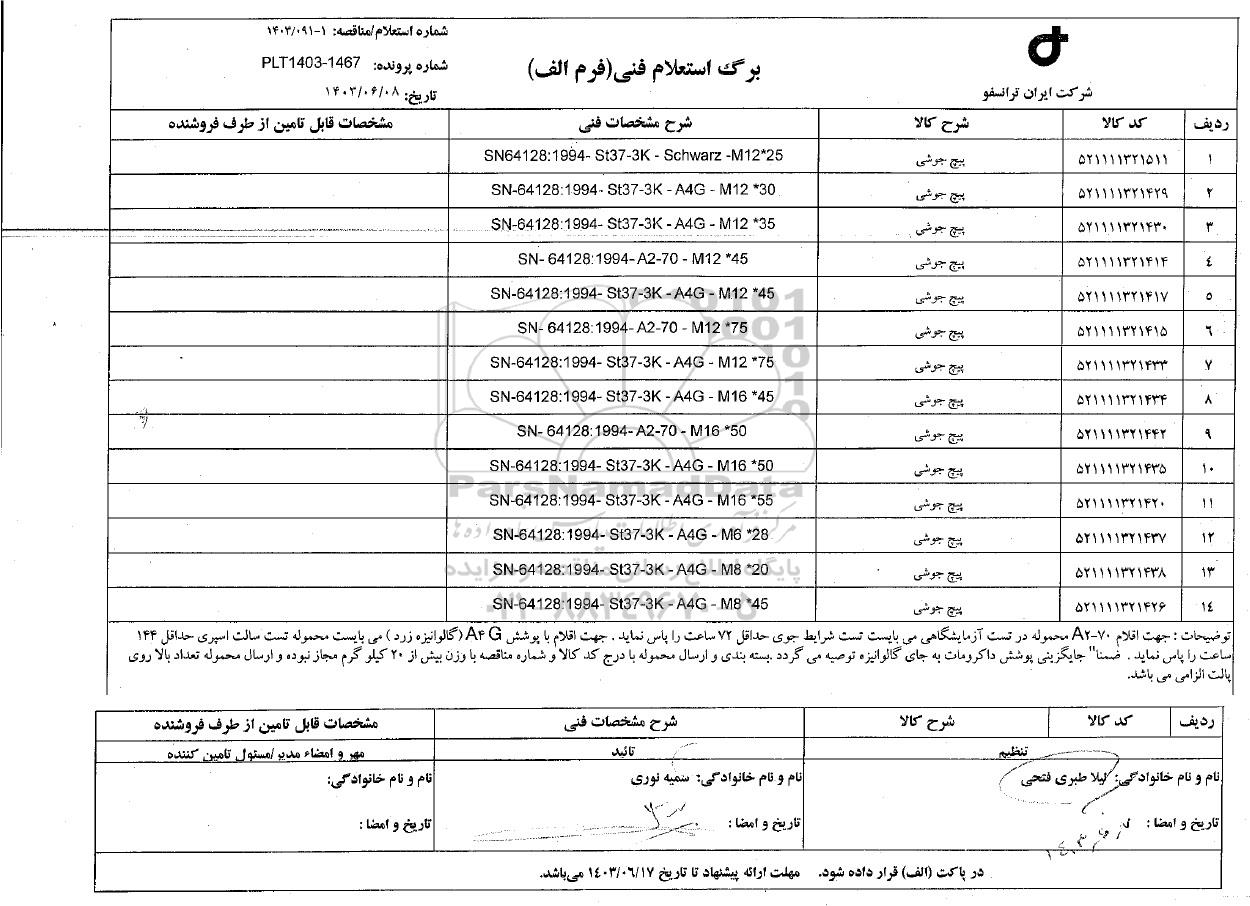 شماره استعلام/مناقصه: ۱-۱۴۰۳/۰۹۱
شماره پرونده: PLT1403-1467
تاریخ: ۱۴۰۳/۰۶/۰۸
برگ استعلام فنی(فرم الف)
شرکت ایران ترانسفو
ردیف کد کالا شرح کالا شرح مشخصات فنی مشخصات قابل تامین از طرف فروشنده
۱ ۵۲۱۱۱۱۳۲۱۵۱۱ پیچ جوشی SN64128:1994- St37-3K - Schwarz -M12*25
۲ ۵۲۱۱۱۱۳۲۱۴۲۹ پیچ جوشی SN-64128:1994- St37-3K - A4G - M12 *30
۳ ۵۲۱۱۱۱۳۲۱۴۳۰ پیچ جوشی SN-64128:1994- St37-3K - A4G - M12 *35
٤ ۵۲۱۱۱۱۳۲۱۴۱۴ پیچ جوشی SN- 64128:1994- A2-70 - M12 *45
۵ ۵۲۱۱۱۱۳۲۱۴۱۷ پیچ جوشی SN-64128:1994- St37-3K - A4G - M12 *45
٦ ۵۲۱۱۱۱۳۲۱۴۱۵ پیچ جوشی SN- 64128:1994- A2-70 - M12 *75
۷ ۵۲۱۱۱۱۳۲۱۴۳۳ پیچ جوشی SN-64128:1994- St37-3K - A4G - M12 *75
۸ ۵۲۱۱۱۱۳۲۱۴۳۴ پیچ جوشی SN-64128:1994- St37-3K - A4G - M16 *45
۹ ۵۲۱۱۱۱۳۲۱۴۴۲ پیچ جوشی SN- 64128:1994- A2-70 - M16 *50
۱۰ ۵۲۱۱۱۱۳۲۱۴۳۵ پیچ جوشی SN-64128:1994- St37-3K - A4G - M16 *50
۱۱ ۵۲۱۱۱۱۳۲۱۴۲۰ پیچ جوشی SN-64128:1994- St37-3K - A4G - M16 *55
۱۲ ۵۲۱۱۱۱۳۲۱۴۳۷ پیچ جوشی SN-64128:1994- St37-3K - A4G - M6 *28
۱۳ ۵۲۱۱۱۱۳۲۱۴۳۸ پیچ جوشی SN-64128:1994- St37-3K - A4G - M8 *20
۱٤ ۵۲۱۱۱۱۳۲۱۴۲۶ پیچ جوشی SN-64128:1994- St37-3K - A4G - M8 *45
ParsNamadData
۰۲۱-۸۸۳۴۹۶۷۰-۵
توضیحات : جهت اقلام A۲-۷۰ محموله در تست آزمایشگاهی می بایست تست شرایط جوی حداقل ۷۲ ساعت را پاس نماید . جهت اقلام با پوشش A۴ G(گالوانیزه زرد ) می بایست محموله تست سالت اسپری حداقل ۱۴۴
ساعت را پاس نماید . ضمنا" جایگزینی پوشش داکرومات به جای گالوانیزه توصیه می گردد .بسته بندی و ارسال محموله با درج کد کالا و شماره مناقصه با وزن بیش از ۲۰ کیلو گرم مجاز نبوده و ارسال محموله تعداد بالا روی
پالت الزامی می باشد.
ردیف کد کالا شرح کالا شرح مشخصات فنی مشخصات قابل تامین از طرف فروشنده
تنظیم تائید مهر و امضاء مدیر/مسئول تامین کننده
نام و نام خانوادگی: لیلا طبری فتحی نام و نام خانوادگی: سمیه نوری نام و نام خانوادگی:
تاریخ و امضا : تاریخ و امضا : تاریخ و امضا :
در پاکت (الف) قرار داده شود. مهلت ارائه پیشنهاد تا تاریخ ۱٤۰۳/۰٦/۱۷ می‌باشد.